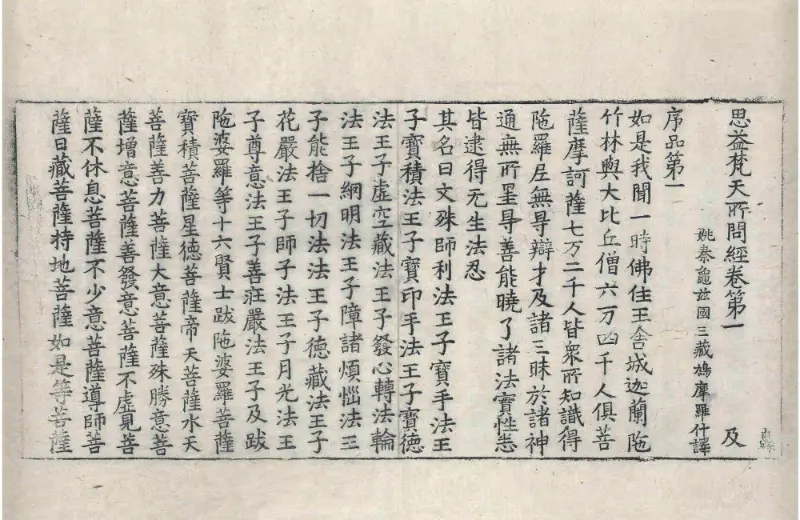 思益梵天所問經卷第一 及
姚秦龜茲國三藏鳩摩羅什譯
序品第一
如是我聞一時佛住王舍城迦蘭陁
竹林與大比丘僧六万四千人俱菩
薩摩訶薩七万二千人皆衆所知識得
陁羅尼無㝵辯才及諸三昧於諸神
通無所罣㝵善能曉了諸法實性悉
皆逮得无生法忍
其名曰文殊師利法王子寶手法王
子寶積法王子寶印手法王子寶德
法王子虛空藏法王子發心轉法輪
法王子網明法王子障諸煩惱法王
子能捨一切法法王子德藏法王子
花嚴法王子師子法王子月光法王
子尊意法王子善莊嚴法王子及跋
陁婆羅等十六賢士跋陁婆羅菩薩
寶積菩薩星德菩薩帝天菩薩水天
菩薩善力菩薩大意菩薩殊勝意菩
薩增意菩薩善發意菩薩不虛見菩
薩不休息菩薩不少意菩薩導師菩
薩日藏菩薩持地菩薩如是等菩薩